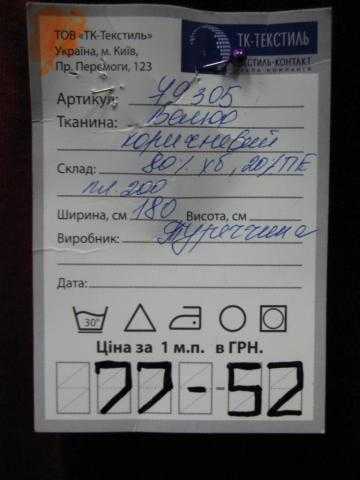 ТОВ «ТК-Текстиль»
Україна, м. Київ,
Пр. Перемоги, 123
ТК-ТЕКСТИЛЬ
Артикул: 49305
Тканина: Велюр
коричневий
Склад: 80% хб, 20%ПЕ
пл. 200
Ширина, см 180 Висота, см
Виробник: Туреччина
Дата:
30°
Ціна за 1 м.п. в ГРН.
77-52